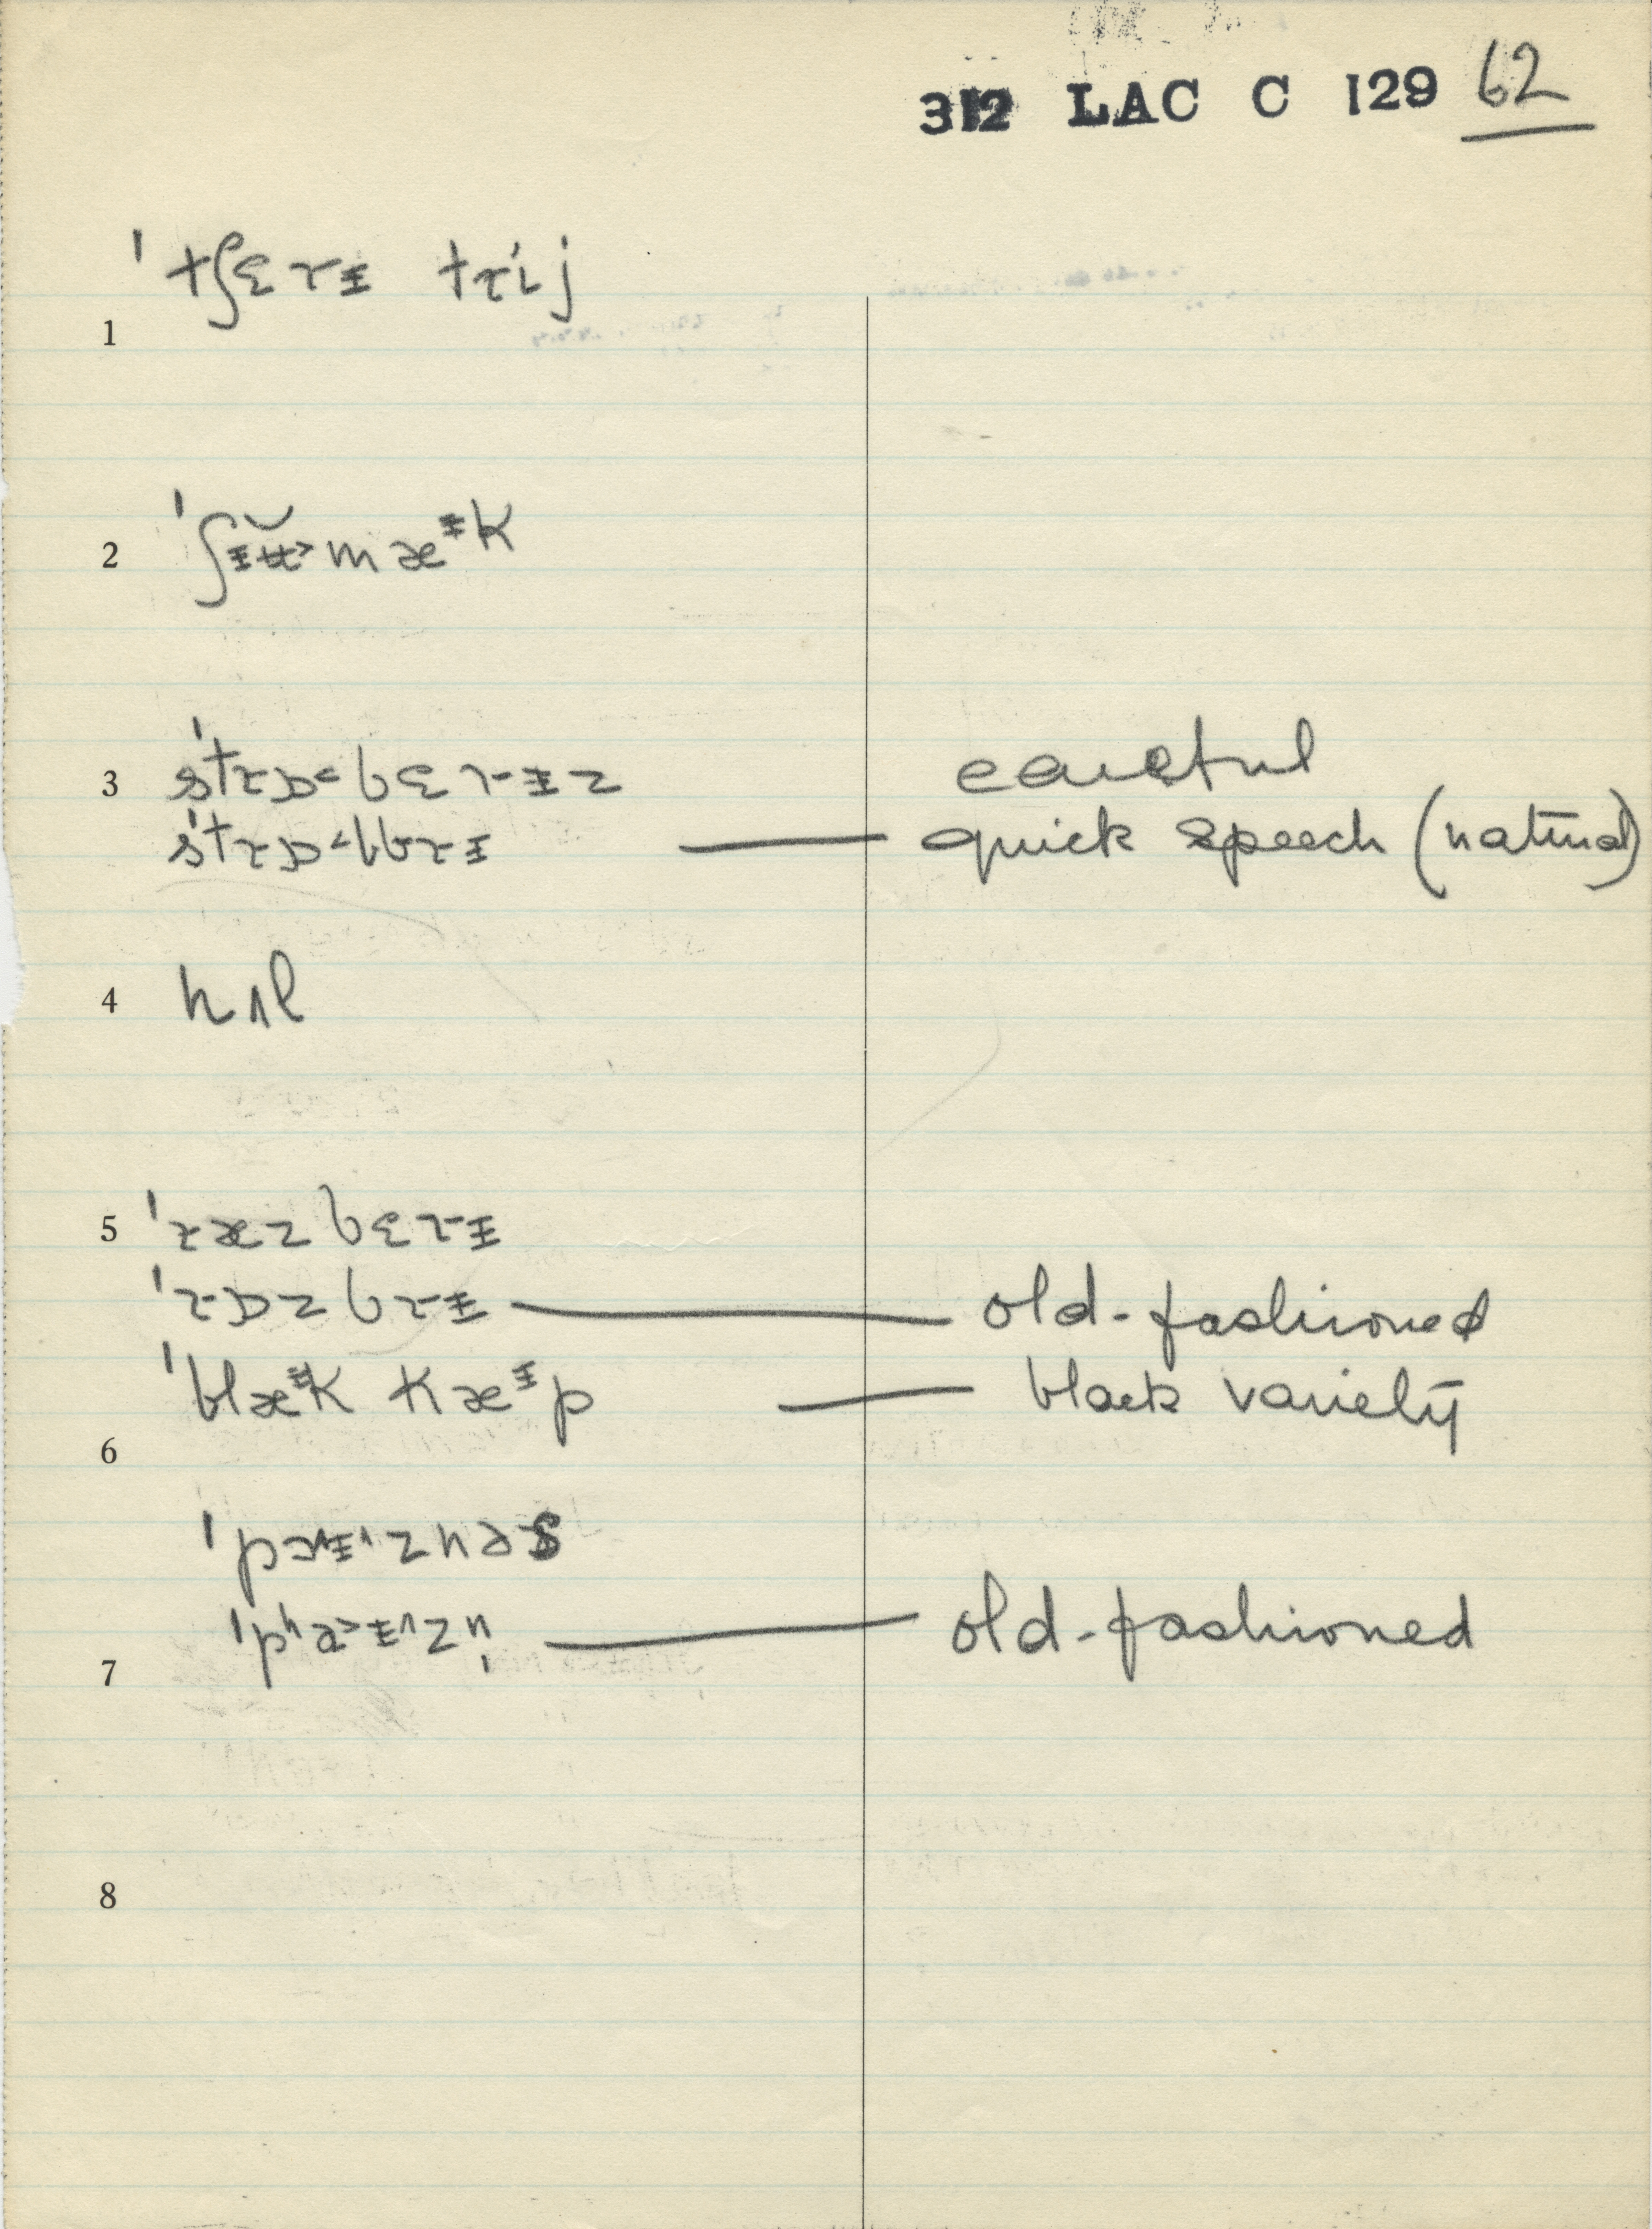 312 LAC C 129 62
ˈtʃɛrɨ trij
1
2 ˈʃɨʉ̆˃mæᵻk
3 sˈtrɒ˂bɛrɨz careful
sˈtrɒ˂bbrɨ — quick speech (natural)
4 hʌl
5 ˈræzbɛrɨ
ˈrɒzbrɨ — old-fashioned
ˈblæᵻk kæᵻp — black variety
6
ˈpɔ^ɨ^znəs
ˈpʰɑ˃ɨ^zn̩ — old-fashioned
7
8